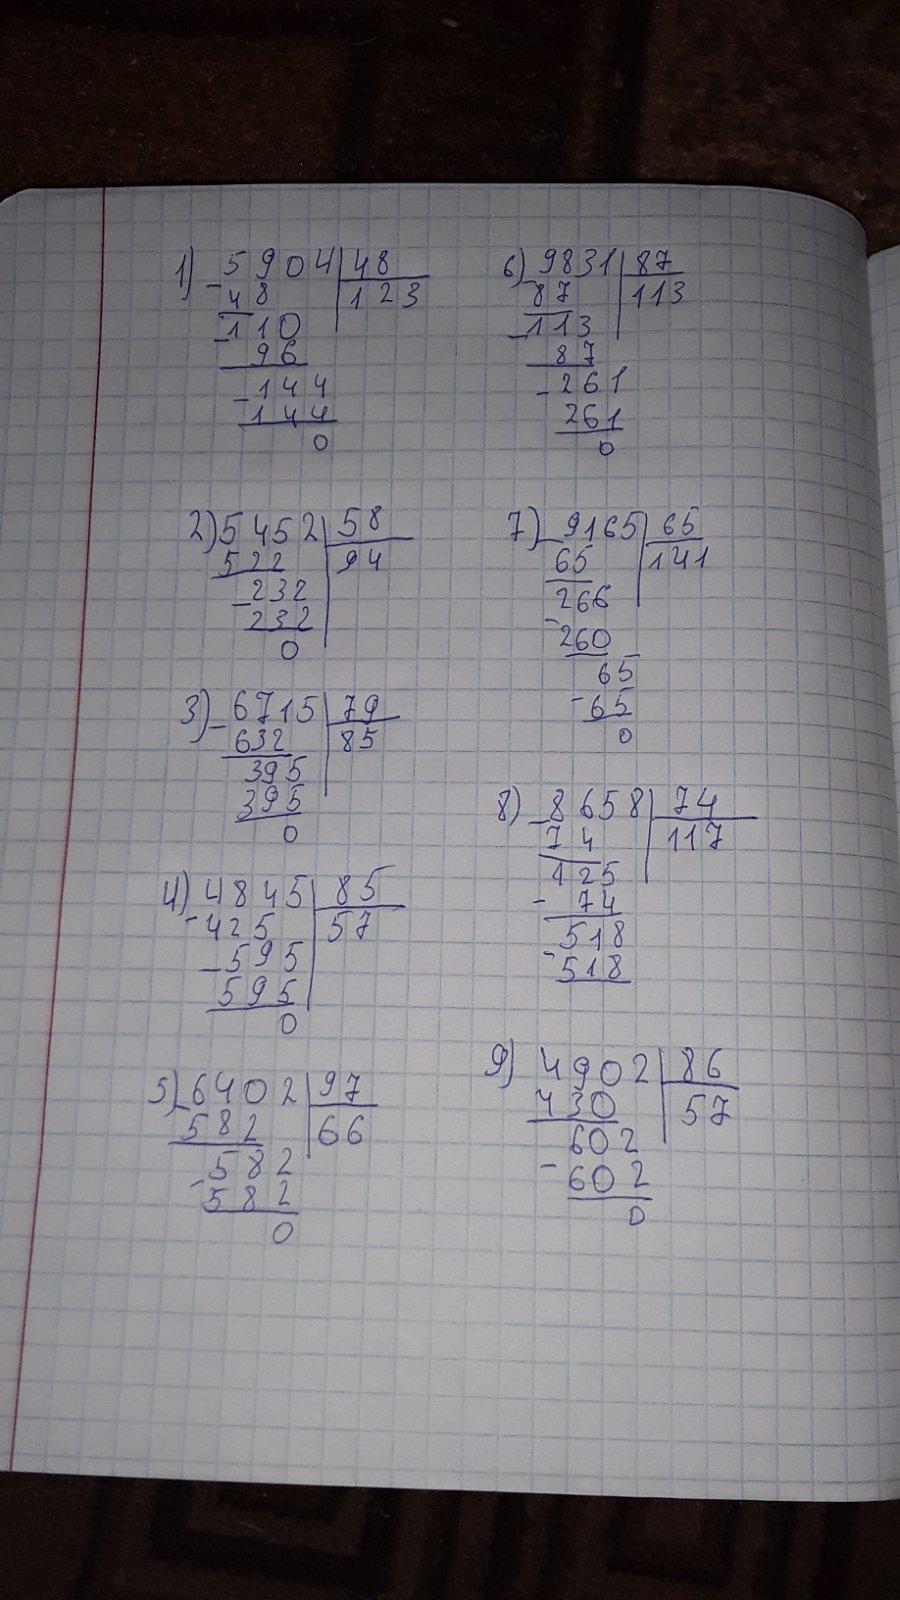 1) - 5904 | 48
48 | 123
- 110
96
- 144
144
0
2) 5452 | 58
522 | 94
- 232
232
0
3) - 6715 | 79
632 | 85
395
395
0
4) - 4845 | 85
425 | 57
- 595
595
0
5) - 6402 | 97
582 | 66
- 582
582
0
6) - 9831 | 87
87 | 113
- 113
87
- 261
261
0
7) - 9165 | 65
65 | 141
266
- 260
65
- 65
0
8) - 8658 | 74
74 | 117
125
- 74
518
- 518
9) 4902 | 86
430 | 57
602
- 602
0